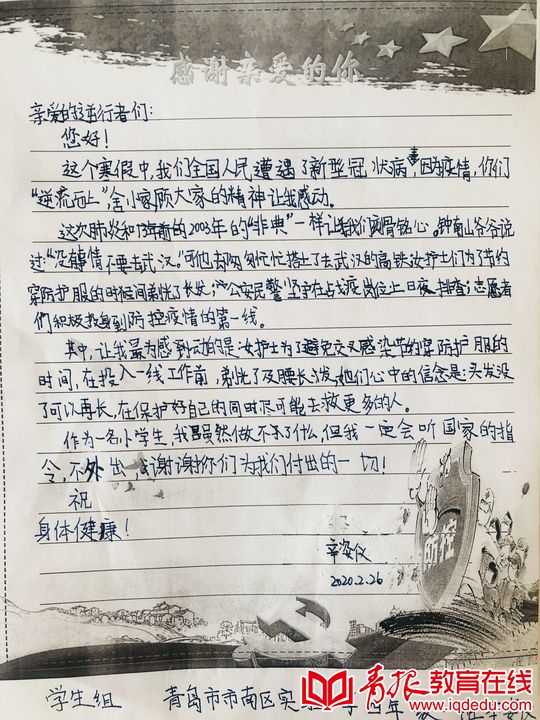 感谢亲爱的你
亲爱的逆行者们:
您好!
这个寒假中,我们全国人民遭遇了新型冠状病毒,因为疫情,你们
"逆流而上",舍小家顾大家的精神让我感动。
这次肺炎和17年前的2003年的"非典"一样让我们刻骨铭心。钟南山爷爷说
过:"没事情不要去武汉。"可他却匆匆忙忙搭上了去武汉的高铁;女护士们为了节约
穿防护服的时间剃光了长发;公安民警坚守在战疫岗位上日夜排查;志愿者
们积极投身到防控疫情的第一线。
其中,让我最为感到的是女护士为了避免交叉感染节约穿防护服的
时间,在投入一线工作前,剃光了及腰长发,她们心中的信念是:头发没
了可以再长,在保护好自己的同时尽可能去救更多的人。
作为一名小学生,我虽然做不了什么,但我一定会听国家的指
令,不外出,谢谢你们为我们付出的一切!
祝
身体健康!
辛姿仪
2020.2.26
防控
学生组 青岛市市南区实
青报教育在线
www.iqdedu.com